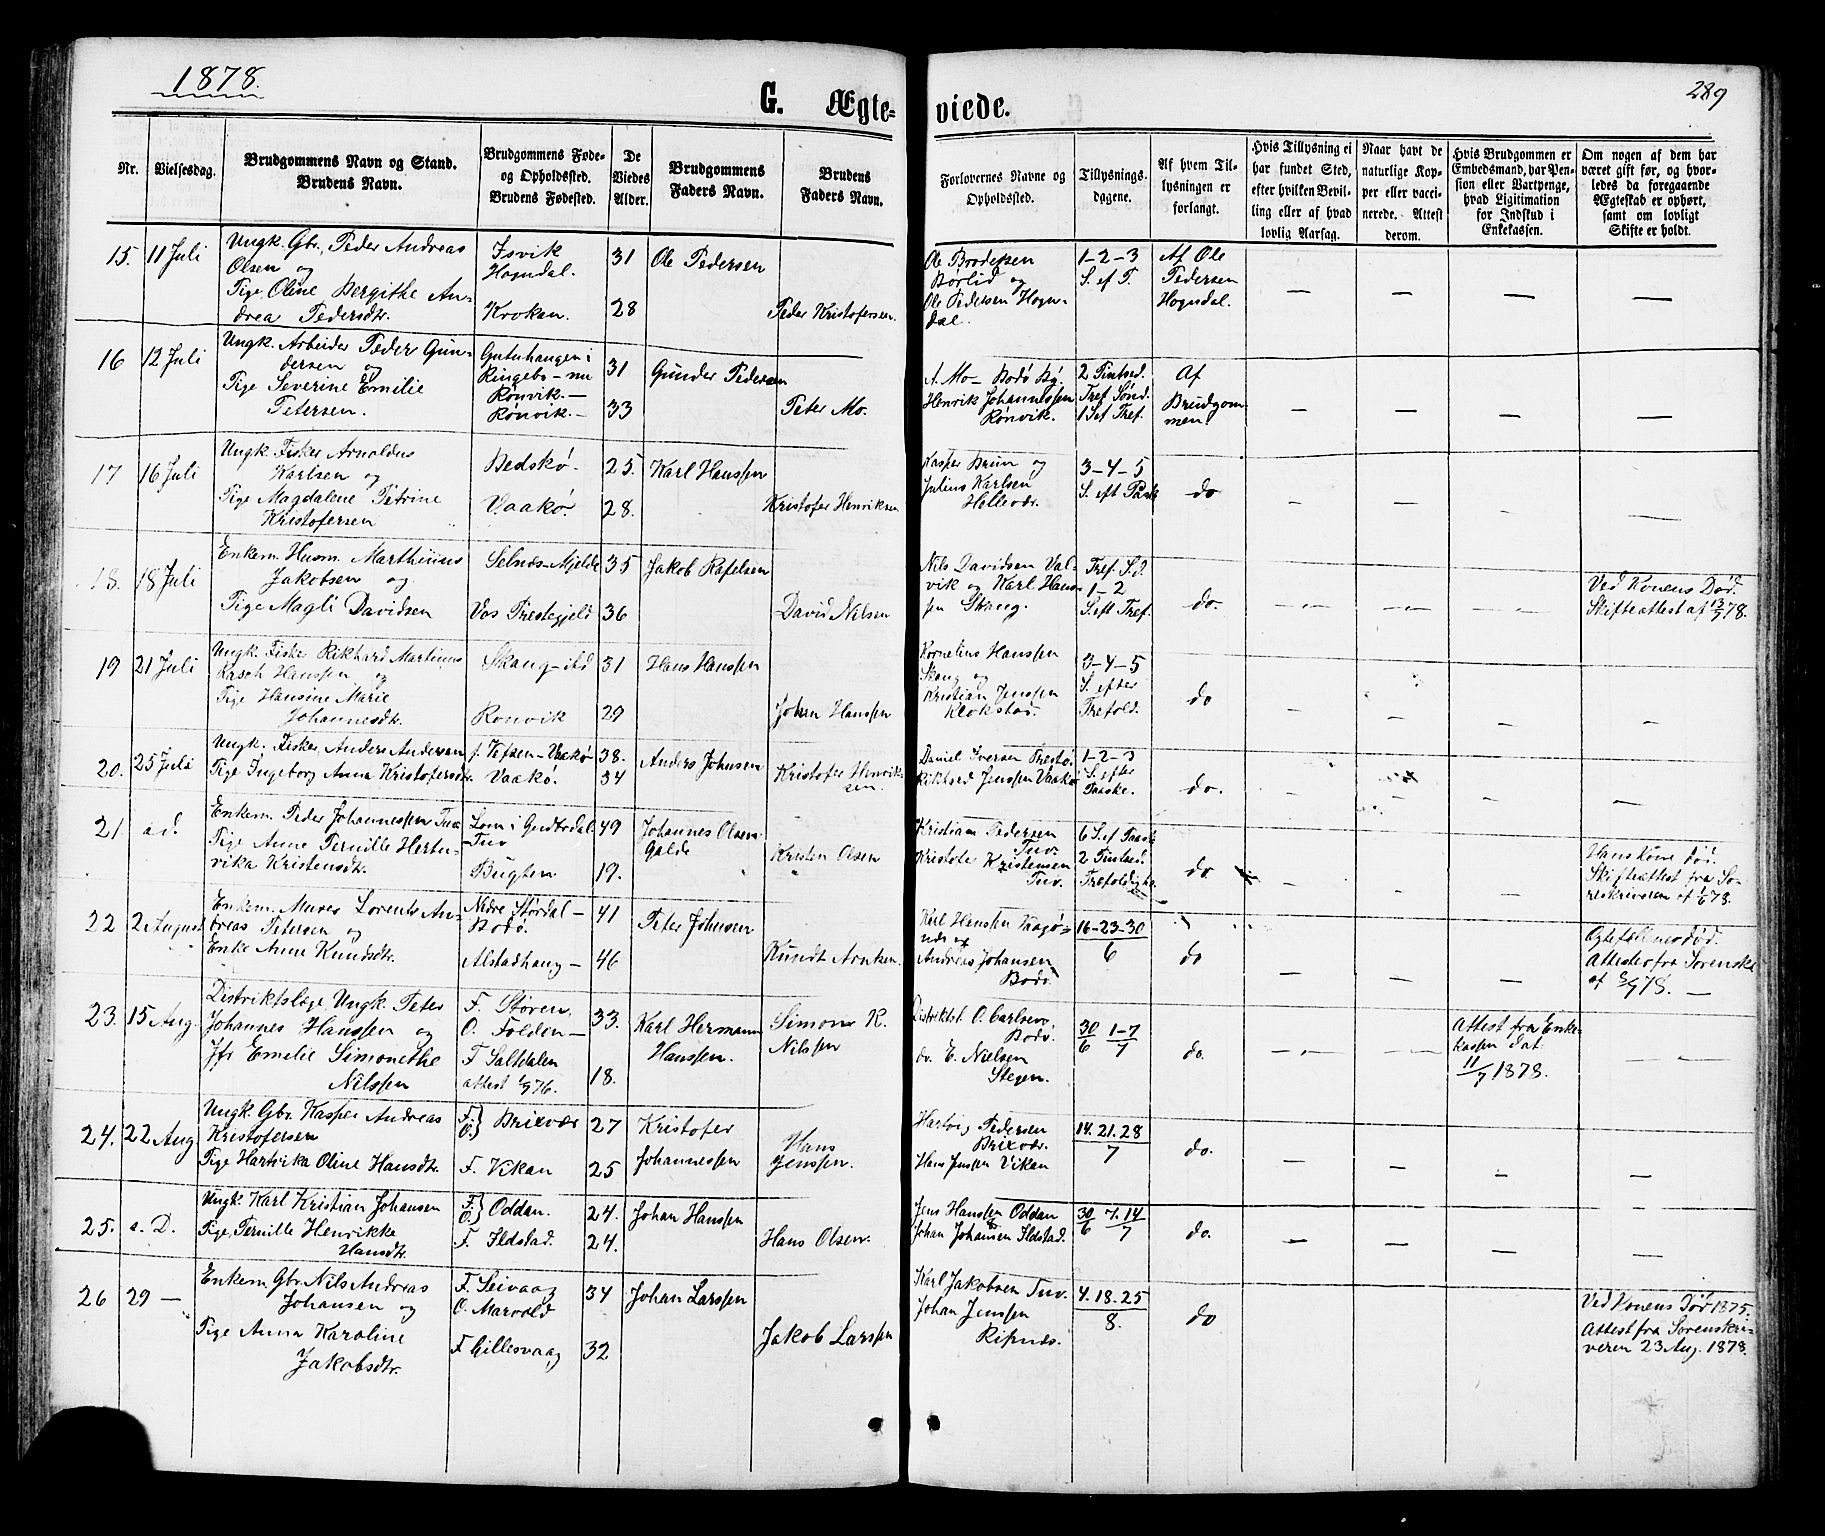 1878.
289
G. Ægte-
viede.
Nr.
Vielsesdag.
Brudgommens Navn og Stand.
Brudens Navn.
Brudgommens Føde-
og Opholdssted.
Brudens Fødested.
De
Viedes
Alder.
Brudgommens
Faders Navn.
Brudens
Faders Navn.
Forlovernes Navne og
Opholdssted.
Tillysnings-
dagene.
Af hvem Til-
lysningen er
forlangt.
Hvis Tillysning ei
har fundet Sted,
efter hvilken Bevil-
ling eller af hvad
lovlig Aarsag.
Naar havt de
naturlige Kop-
per eller vacci-
nerede. Attest
derom.
Hvis Brudgommen er
Embedsmand, har Pen-
sion eller Vartpenge,
hvad Legitimation
for Indskud i
Enkekassen.
Om nogen af dem har
været gift før, og hvor-
ledes da foregaaende
Ægteskab er ophørt,
samt om lovligt
Skifte er holdt.
15. 11 Juli
Ungk. Gbr. Peder Andreas
Olsen og
Pige Oline Bergithe An-
drea Pedersdtr.
Isvik
Hogndal.
Krokan.
31
28
Ole Pedersen
Peder Kristofersen.
Ole
Børlid og
Ole Pedersen Hogn-
dal.
1-2-3
S. ef T.
Af Ole
Pedersen
Hogndal.
16 12 Juli
Ungk. Arbeider Peder Gun-
dersen og
Pige Severine Emilie
Petersen.
Ringebo - nu
Rønvik. -
Rønvik. -
31
33
Gunder Pedersen
Peter Mo.
A. Mo - Bodø By.
Henrik Johannessen
Rønvik.
2 Pintsed.
Tref Sønd.
1 S ef Tref.
Af
Brudgom-
men.
17 16 Juli
Ungk. Fisker Arnoldus
Karlsen og
Pige Magdalene Petrine
Kristofersen
Bedskø.
Vaakø.
25.
28.
Karl Hanssen
Kristofer Henriksen
Kasper Brun og
Julius Karlsen
Hellevær.
3-4-5
S. eft Paask
do
18. 18 Juli
Enkem. Husm. Marthinus
Jakobsen og
Pige Magli Davidsen
Selnæs-Mjelde
Vos Prestegjeld
35
36
Jakob Rafelsen
David Nilsen
Nils Davidsen Val-
vik og Karl Hans-
sen Skaug.
Tref. S.d.
1-2
S. eft Tref.
do.
Ved Konens Død.
Skifteattest af 13/7 78.
19 21 Juli
Ungk. Fiske Rikhard Martinus
Rasch Hanssen og
Pige Hansine Marie
Johannesdtr.
Skaug - ibd
Rønvik
31
29
Hans Hanssen
Johan Hanssen
Kornelius Hanssen
Skaug og
Kristian Jenssen
Klokstad.
3-4-5
S. efter
Trefold.
do
20. 25 Juli
Ungk. Fisker Anders Andersen
Pige Ingeborg Anna Kristofersdtr.
f. Vefsen - Vaakø
Vaakø.
38.
34
Anders Johnsen
Kristofer Henrik-
sen.
Daniel Iversen Prestø
Rikhard Jenssen Vaakø
1-2-3
S. efter
Paaske.
do.
21. ad.
Enkem. Peder Johannessen Tuv
Pige Anne Pernille Hertu-
vika Kristensdtr.
Lom i Gudbrdal.
- Tuv
Bugten
49
19.
Johannes Olsen
Galde
Kristen Olsen
Kristian Pedersen
Tuv.
Kristofe Kristensen
Tuv.
6 S. ef Paask
2 Pintsed.
Trefoldighe.
do
Hans Kone død.
Skifteattest fra So-
renskriveren af 1/6 78.
22 2 August
Enkem. Murer Lorents An-
dreas Petersen og
Enke Anne Knudsdtr.
Nedre Størdal -
Bodø.
Alstadhaug -
41
46
Peter Johnsen
Kundt Arntsen.
Karl Hanssen Vaagø-
næs og
Andreas Johansen
Bodø.
16-23-30
6
do
Ægtefællenes død.
Attester fra Sorenskr.
23. 15 Aug.
Distriktslæge Ungk. Peter
Johannes Hanssen og
Jfr Emelie Simonethe
Nilssen
F. Støren.
O. Folden -
F. Saltdalen
attest 1/9 76.
33.
18.
Karl Hermann
Hanssen.
Simon K.
Nilssen
Distriktsl. O. Carlsen.
Bodø.
do. E. Nielsen
Stegen.
30/6 1-7/7
do.
Attest fra Enke-
kassen dat
11/7 1878.
24. 22 Aug
Ungk. Gbr. Kasper Andreas
Kristofersen
Pige Hartvika Oline Hansdtr.
F. O.} Brixvær
F. Vikan
27
25
Kristofer
Johannessen
Hans
Jenssen.
Hartvig Pedersen
Brixvær.
Hans Jenssen Vikan
14. 21. 28
7
do.
25. a. D.
Ungk. Karl Kristian Johansen
Pige Pernille Henrikke
Hansdtr.
F. O.} Oddan.
F. Ildstad.
24.
24.
Johan Hanssen
Hans Olsen.
Jens Hanssen Oddan
Johan Johansen Ildstad.
30/6 7.14/7
do.
26 29 -
Enkem. Gbr. Nils Andreas
Johansen og
Pige Anna Karoline
Jakobsdtr.
F. Seivaag
O. Marvold
F. Gillesvaag
34
32
Johan Larssen
Jakob Larssen
Karl Jakobsen Tuv.
Johan Jenssen
Ripnæs.
4. 18. 25
8.
do
Ved Konens Død 1875.
Attest fra Sorenskri-
veren 23 Aug. 1878.